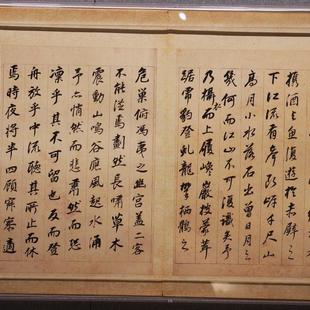 攜酒與魚復遊於赤壁之
下江流有聲斷岸千尺山
高月小水落石出曾日月之
幾何而江山不可復識矣予
乃攝衣而上履巉巖披蒙茸
踞虎豹登虬龍攀栖鶻之
危巢俯馮夷之幽宮蓋二客
不能從焉劃然長嘯草木
震動山鳴谷應風起水涌
予亦悄然而悲肅然而恐
凜乎其不可留也反而登
舟放乎中流聽其所止而休
焉時夜將半四顧寂寥適